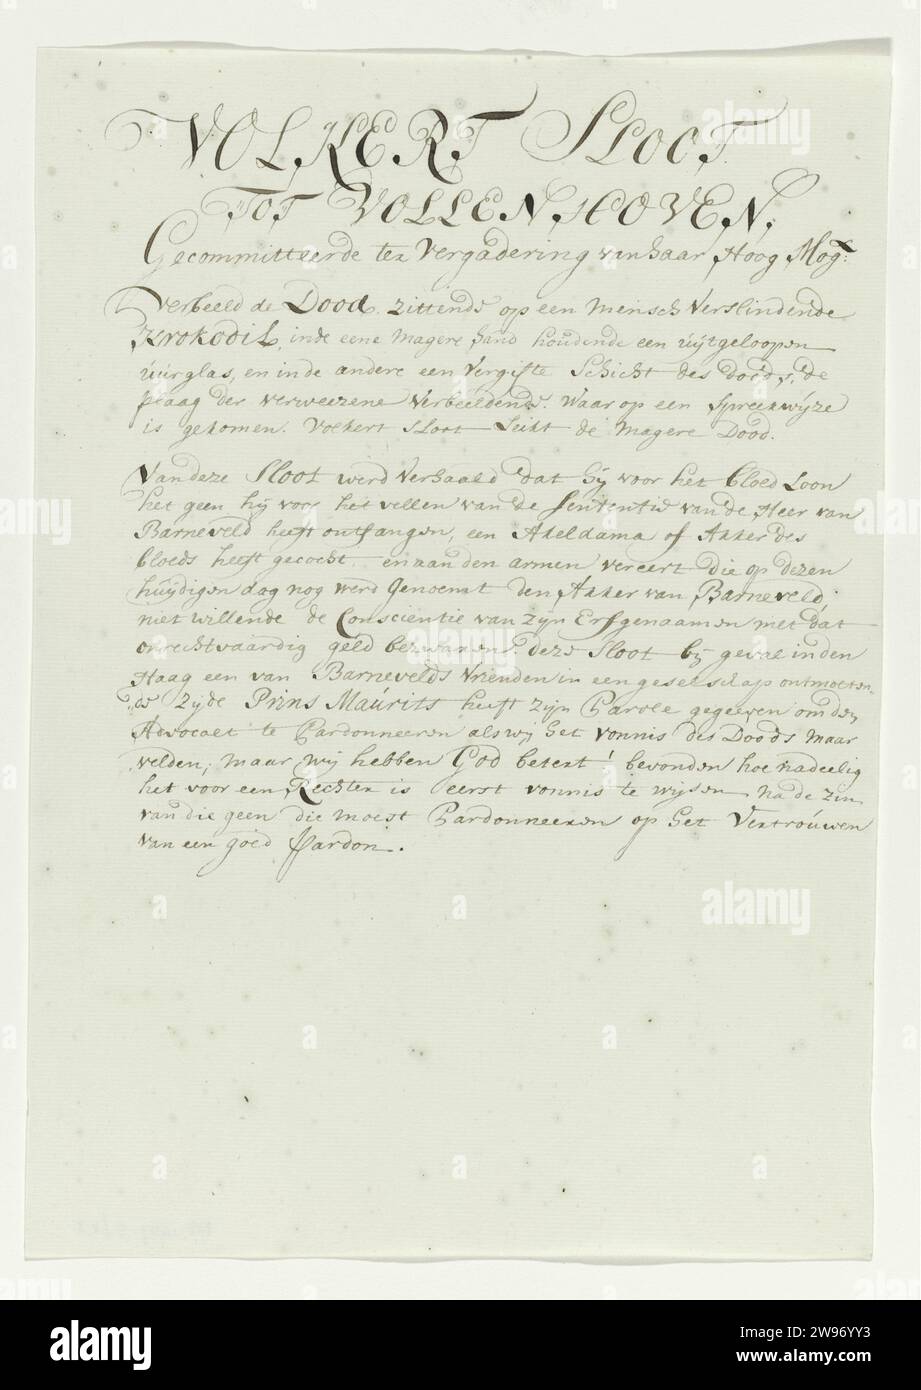 VOLKERT SLOOT
TOT VOLLENHOVEN,
Gecommitteerde ter Vergadering van haar Hoog Mog:
Verbeeld de Dood, zittende op een mensch Verslindende
Krokodil, inde eene magere hand houdende een uÿtgeloopen
uurglas, en inde andere een Vergifte Schicht des doods, de
plaag der verweezene Verbeeldende. Waar op een Spreekwÿze
is gekomen. Volkert Sloot Lukt de magere Dood.
Van deze Sloot werd Verhaald dat hÿ voor het bloed Loon
het geen hÿ voor het vellen van de Sententie van de Heer van
Barneveld heeft ontfangen, een Akeldama of Akker des
bloeds heeft gecocht en aan den armen vereert die op dezen
huÿdigen dag nog werd Genoemt Den Akker van Barneveld,
niet willende de Conscientie van zÿn Erfgenaamen met dat
onrechtvaardig geld bezwaaren deze Sloot bÿ geval in den
Haag een van Barnevelds Vrienden in een geselschap ontmoeten-
de zÿde Prins Maúrits heeft zÿn Parole gegeeven om den
Advocaet te Pardonneeren als wÿ het vonnis des Doods maar
velden, maar wÿ hebben God betert! bevonden hoe nadeelig
het voor een Rechter is eerst vonnis te wÿsen na de zin
van die geen die moest Pardonneeren op het Vertroúwen
van een goed Pardon.
alamy
Image ID: 2W96YY3
www.alamy.com